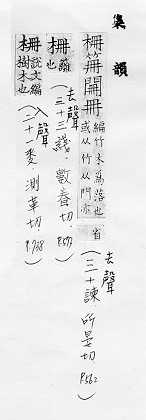 集韻
柵笧冊 編竹木為落也
或从竹从門亦省
去聲
(三十諫 所晏切 P.562)
柵 籬也
去聲
(三十三線 數眷切 P.573)
柵 說文編樹木也
入聲
(二十一麥 測革切 P.738)